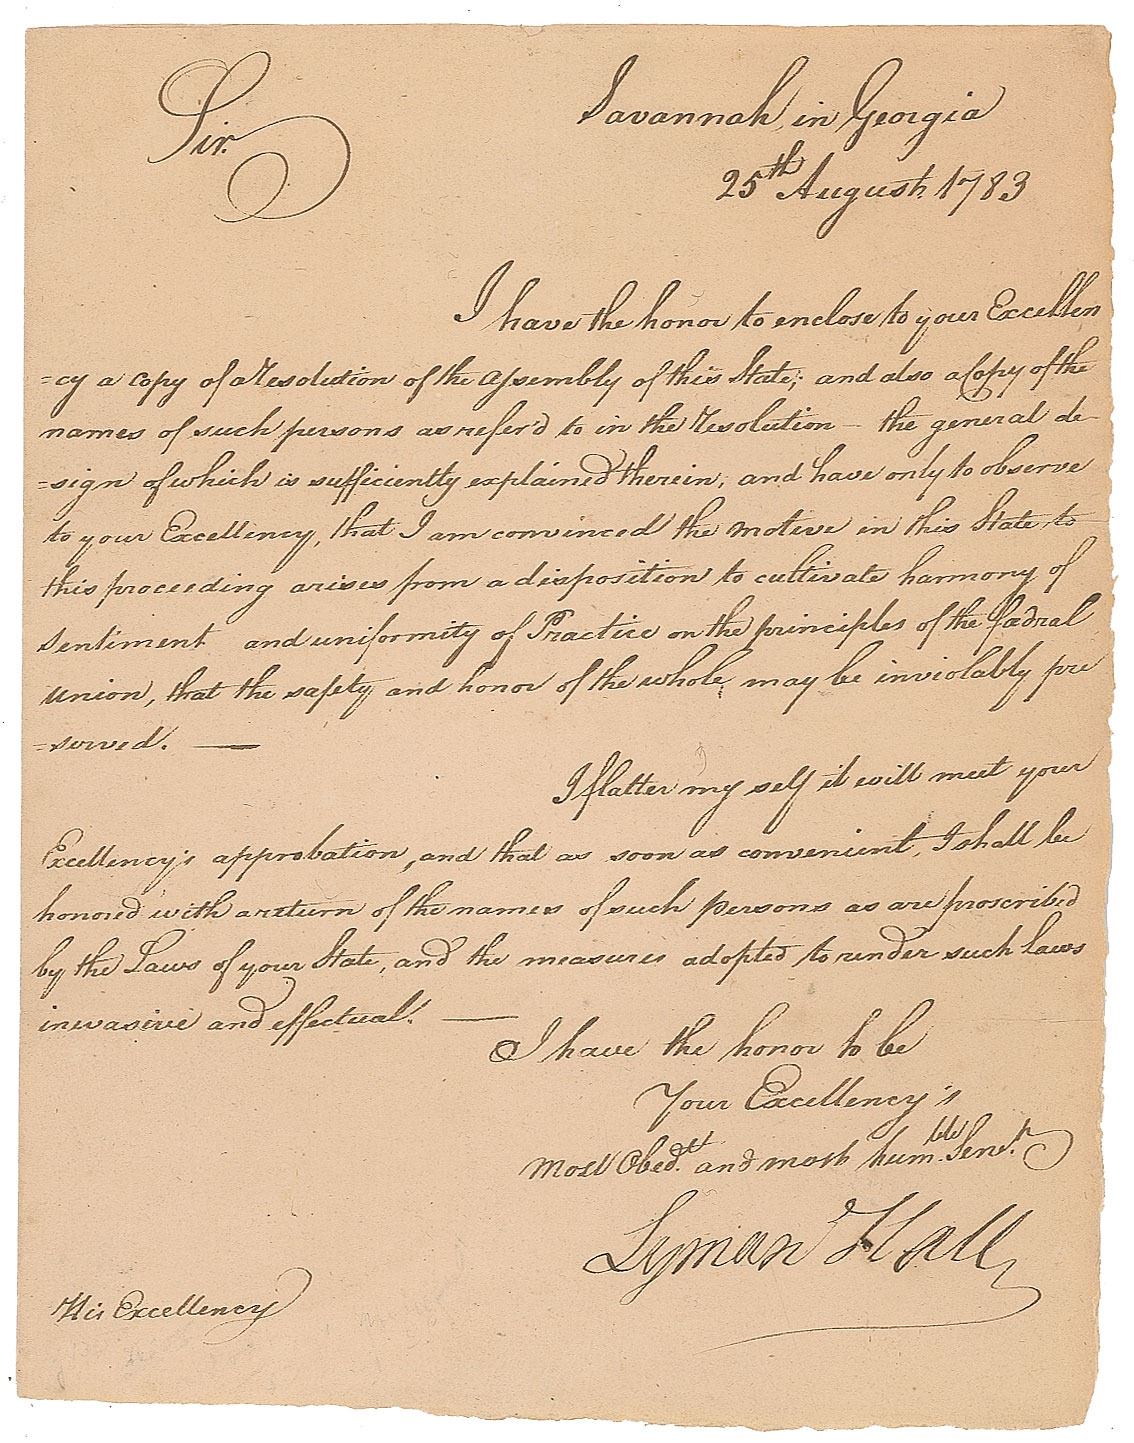 Sir.
Savannah, in Georgia
25th August. 1783
I have the honor to enclose to your Excellen
=cy a copy of a Resolution of the Assembly of this State; and also a Copy of the
names of such persons as refer'd to in the Resolution — the general de-
=sign of which is sufficiently explained therein, and have only to observe
to your Excellency, that I am convinced the motive in this State to
this proceeding arises from a disposition to cultivate harmony of
Sentiment and uniformity of Practice on the principles of the fœdral
union, that the safety and honor of the whole may be inviolably pre
=served. —
I flatter my self it will meet your
Excellency's approbation, and that as soon as convenient, I shall be
honored with a return of the names of such persons as are proscribed
by the Laws of your State, and the measures adopted to render such laws
inevasive and effectual. —
I have the honor to be
Your Excellency's
most Obedt. and most humble Servt.
Lyman Hall
His Excellency